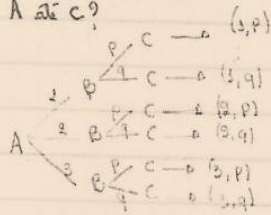 A até C?
p C → (1,p)
1 B q C → (1,q)
A 2 B p C → (2,p)
q C → (2,q)
3 B p C → (3,p)
q C → (3,q)